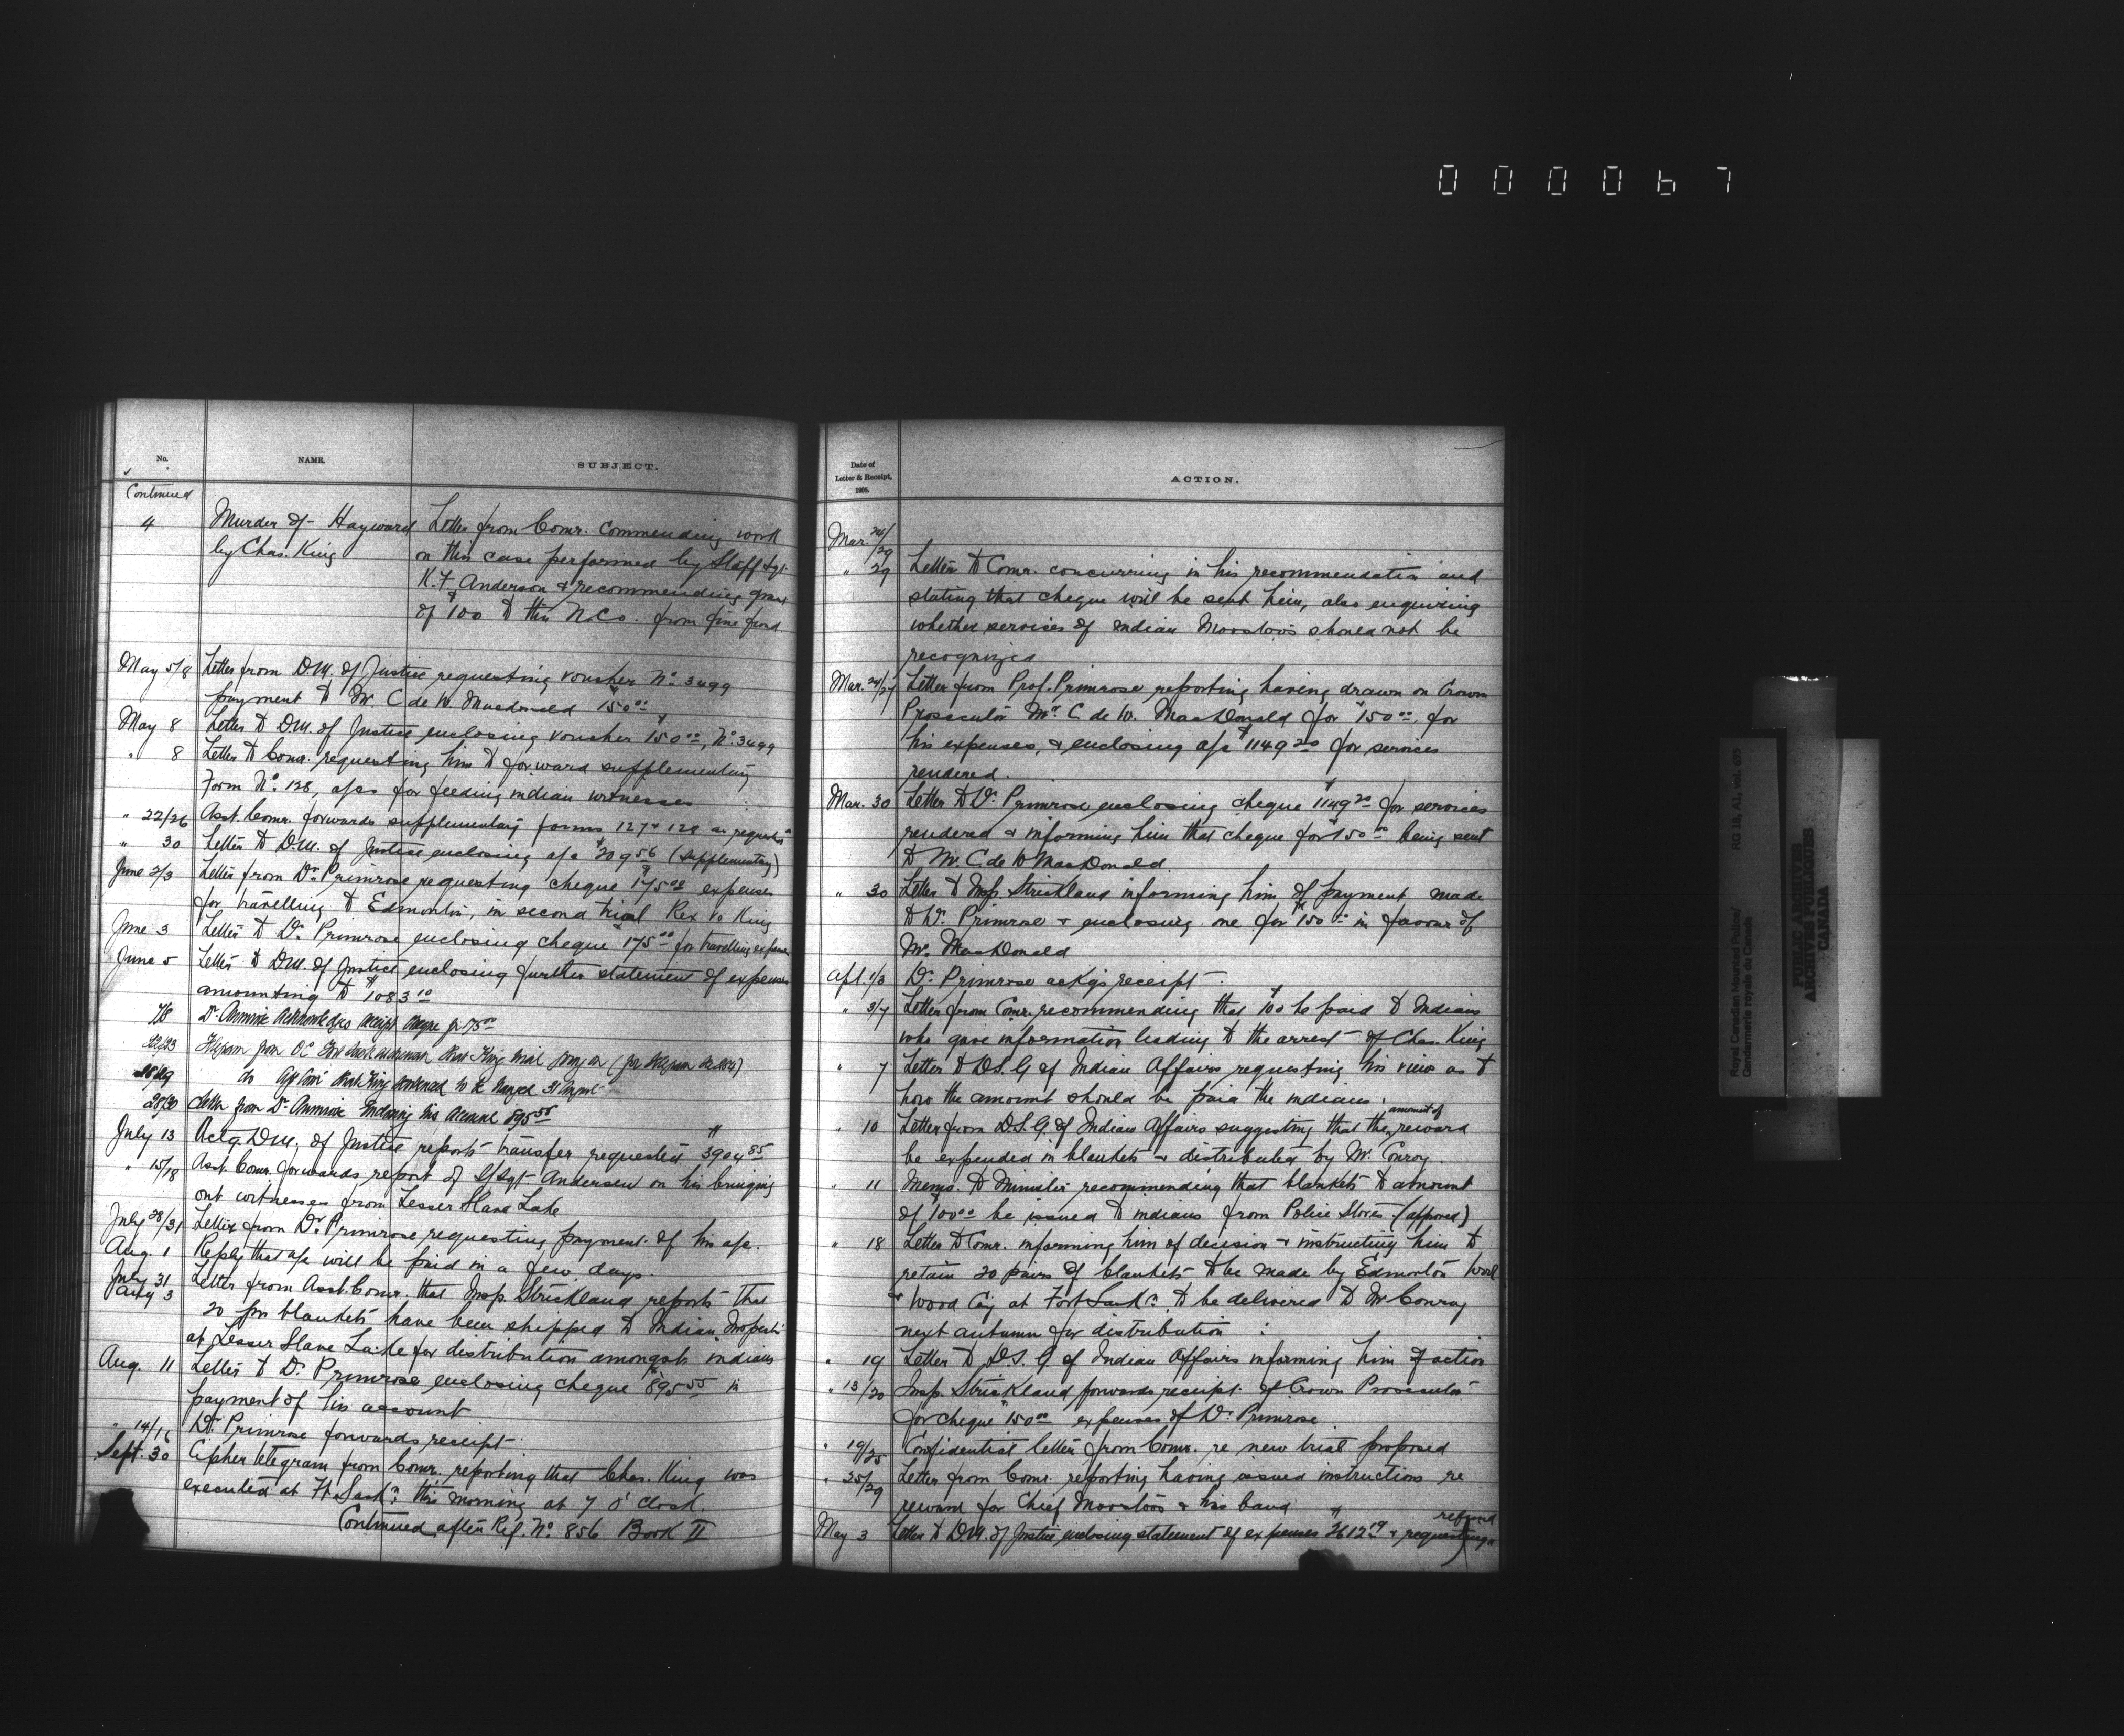 0 0 0 0 6 7
No.
NAME.
SUBJECT.
Continued
4
Murder of Hayward
by Chas. King
Letter from Comr. commending work
on this case performed by Staff Sgt.
K. F. Anderson & recommending grant
of $100 to this N.C.O. from fine fund
May 5/8 Letter from D.M. of Justice requesting voucher No. 3499
payment to Mr. C de W. Macdonald $150 00
May 8 Letter to D.M. of Justice enclosing voucher $150 00, No. 3499
" 8 Letter to Comr. requesting him to forward supplementary
Form No. 128, a/cs for feeding indian witnesses
" 22/26 Asst. Comr. forwards supplementary forms 127 & 128 as requested
" 30 Letter to D.M. of Justice enclosing a/c $209 56 (supplementary)
June 2/3 Letter from Dr. Primrose requesting cheque $175 00 expenses
for travelling to Edmonton, in second trial Rex vs King
June 3 Letter to Dr. Primrose enclosing cheque $175 00 for travelling expenses
June 5 Letter to D.M. of Justice enclosing further statement of expenses
amounting to $1083 10
Dr. Primrose acknowledges receipt cheque for 175 00
22/23 Telegram from O.C. Fort Sask. that King trial
do that King sentenced to be hanged 31 August
28/30 Letter from Dr. Primrose enclosing his account 895 55
July 13 Actg D.M. of Justice reports transfer requested $3904 85
" 15/18 Asst. Comr. forwards report of S/Sgt Anderson on his bringing
out witnesses from Lesser Slave Lake
July 28/31 Letter from Dr. Primrose requesting payment of his a/c.
Aug. 1 Reply that a/c will be paid in a few days.
July 31 Letter from Asst. Comr. that Insp. Strickland reports that
3 20 prs blankets have been shipped to Indian Inspector
at Lesser Slave Lake for distribution amongst indians
Aug. 11 Letter to Dr. Primrose enclosing cheque $895 55 in
payment of his account
" 14/16 Dr. Primrose forwards receipt
Sept. 30 Cipher telegram from Comr. reporting that Chas. King was
executed at Ft. Sask'n this morning at 7 O'clock.
Continued after Ref. No. 856 Book II
Date of
Letter & Receipt,
1905.
ACTION.
Mar. 24/29
" 29 Letter to Comr. concurring in his recommendation and
stating that cheque will be sent him, also enquiring
whether services of Indian Moostoos should not be
recognized
Mar. 24/27 Letter from Prof. Primrose reporting having drawn on Crown
Prosecutor Mr. C. de W. MacDonald for $150 00, for
his expenses, & enclosing a/c $1149 20 for services
rendered.
Mar. 30 Letter to Dr. Primrose enclosing cheque $1149 20 for services
rendered & informing him that cheque for $150 00 being sent
to Mr. C. de W MacDonald
" 30 Letter to Insp. Strickland informing him of payment made
to Dr. Primrose & enclosing one for $150 00 in favour of
Mr. MacDonald
Apl. 1/3 Dr. Primrose ackgs receipt
" 3/7 Letter from Comr. recommending that $100 be paid to Indians
who gave information leading to the arrest of Chas. King
" 7 Letter to D.S.G of Indian Affairs requesting his views as to
how the amount should be paid the indians.
" 10 Letter from D.S.G. of Indian Affairs suggesting that the amount of reward
be expended in blankets & distributed by Mr. Conroy.
" 11 Memo. to Minister recommending that blankets to amount
of $100 00 be issued to indians from Police Stores. (approved)
" 18 Letter to Comr. informing him of decision & instructing him to
retain 20 pairs of blankets to be made by Edmonton Wool
& Wood Coy at Fort Sask'n to be delivered to Mr Conroy
next autumn for distribution
" 19 Letter to D.S.G of Indian Affairs informing him of action
" 13/20 Insp. Strickland forwards receipt of Crown Prosecutor
for cheque $150 00 expenses of Dr. Primrose
" 19/25 Confidential letter from Comr. re new trial proposed
" 25/29 Letter from Comr. reporting having issued instructions re
reward for Chief Moostoos & his band
May 3 Letter to D.M. of Justice enclosing statement of expenses $2612 19 & requesting refund
Royal Canadian Mounted Police/
Gendarmerie royale du Canada
RG 18, A1, vol.
PUBLIC ARCHIVES
ARCHIVES PUBLIQUES
CANADA